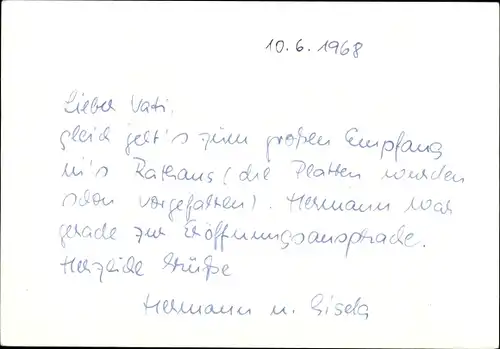 10.6.1968
Lieber Vati,
gleich geht's zum großen Empfang
in's Rathaus (die Platten wurden
schon vorgefahren). Hermann war
gerade zur Eröffnungsansprache.
Herzliche Grüße
Hermann u. Gisela